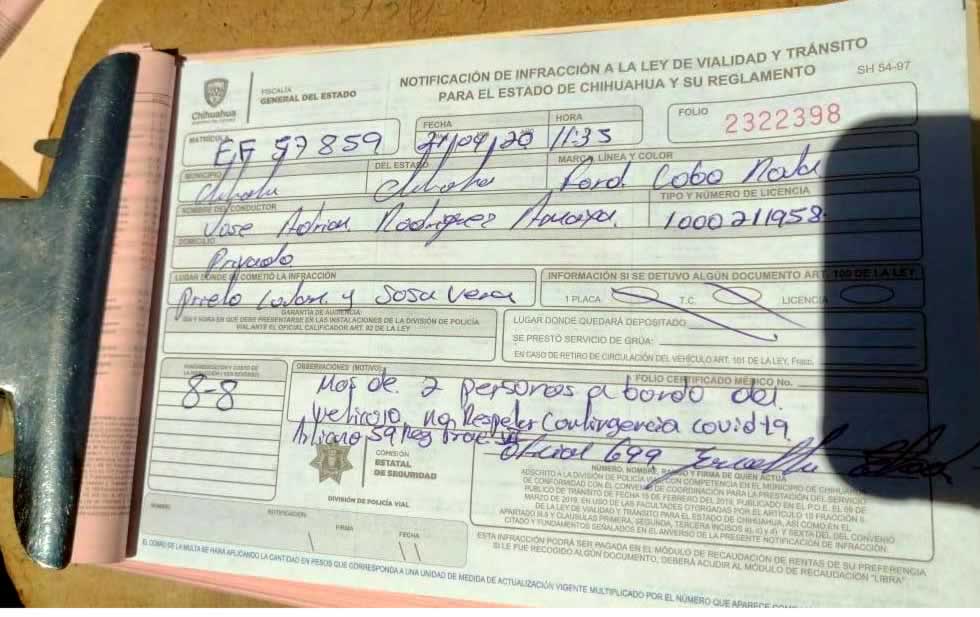 NOTIFICACIÓN DE INFRACCIÓN A LA LEY DE VIALIDAD Y TRÁNSITO
PARA EL ESTADO DE CHIHUAHUA Y SU REGLAMENTO
SH 54-97
Chihuahua
FISCALÍA
GENERAL DEL ESTADO
MATRÍCULA
EF 57859
FECHA
21/04/20
HORA
11:35
FOLIO
2322398
MUNICIPIO
DEL ESTADO
MARCA, LÍNEA Y COLOR
Ford.
NOMBRE DEL CONDUCTOR
Jose Adrian Rodriguez
TIPO Y NÚMERO DE LICENCIA
1000211958
DOMICILIO
Privado
LUGAR DONDE SE COMETIÓ LA INFRACCIÓN
y Sosa Vera
INFORMACIÓN SI SE DETUVO ALGÚN DOCUMENTO ART. 100 DE LA LEY
1 PLACA
T.C.
LICENCIA
GARANTÍA DE AUDIENCIA:
DÍA Y HORA EN QUE DEBE PRESENTARSE EN LAS INSTALACIONES DE LA DIVISIÓN DE POLICÍA
VIAL ANTE EL OFICIAL CALIFICADOR ART. 92 DE LA LEY
LUGAR DONDE QUEDARÁ DEPOSITADO
SE PRESTÓ SERVICIO DE GRÚA:
EN CASO DE RETIRO DE CIRCULACIÓN DEL VEHÍCULO ART. 101 DE LA LEY, Fracc.
8-8
OBSERVACIONES (MOTIVO)
FOLIO CERTIFICADO MÉDICO No.
Mas de 2 personas a bordo del
vehiculo no Respetar Contingencia covid-19
Oficial 699
COMISIÓN
ESTATAL
DE SEGURIDAD
DIVISIÓN DE POLICÍA VIAL
NÚMERO, NOMBRE, RANGO Y FIRMA DE QUIEN ACTUA
ADSCRITO A LA DIVISIÓN DE POLICÍA VIAL CON COMPETENCIA EN EL MUNICIPIO DE CHIHUAHUA
DE CONFORMIDAD CON EL CONVENIO DE COORDINACIÓN PARA LA PRESTACIÓN DEL SERVICIO
PÚBLICO DE TRÁNSITO DE FECHA 15 DE FEBRERO DEL 2019, PUBLICADO EN EL P.O.E. EL 09 DE
MARZO DE 2019, EN USO DE LAS FACULTADES OTORGADAS POR EL ARTÍCULO 10 FRACCIÓN II
DE LA LEY DE VIALIDAD Y TRÁNSITO PARA EL ESTADO DE CHIHUAHUA, ASÍ COMO EN EL
CITADO Y FUNDAMENTOS SEÑALADOS EN EL ANVERSO DE LA PRESENTE NOTIFICACIÓN DE INFRACCIÓN.
NOMBRE
NOTIFICACIÓN
FIRMA
FECHA
ESTA INFRACCIÓN PODRÁ SER PAGADA EN EL MÓDULO DE RECAUDACIÓN DE RENTAS DE SU PREFERENCIA
SI LE FUE RECOGIDO ALGÚN DOCUMENTO, DEBERÁ ACUDIR AL MÓDULO DE RECAUDACIÓN "LIBRA"
EL COBRO DE LA MULTA SE HARÁ APLICANDO LA CANTIDAD EN PESOS QUE CORRESPONDA A UNA UNIDAD DE MEDIDA DE ACTUALIZACIÓN VIGENTE MULTIPLICADO POR EL NÚMERO QUE APARECE